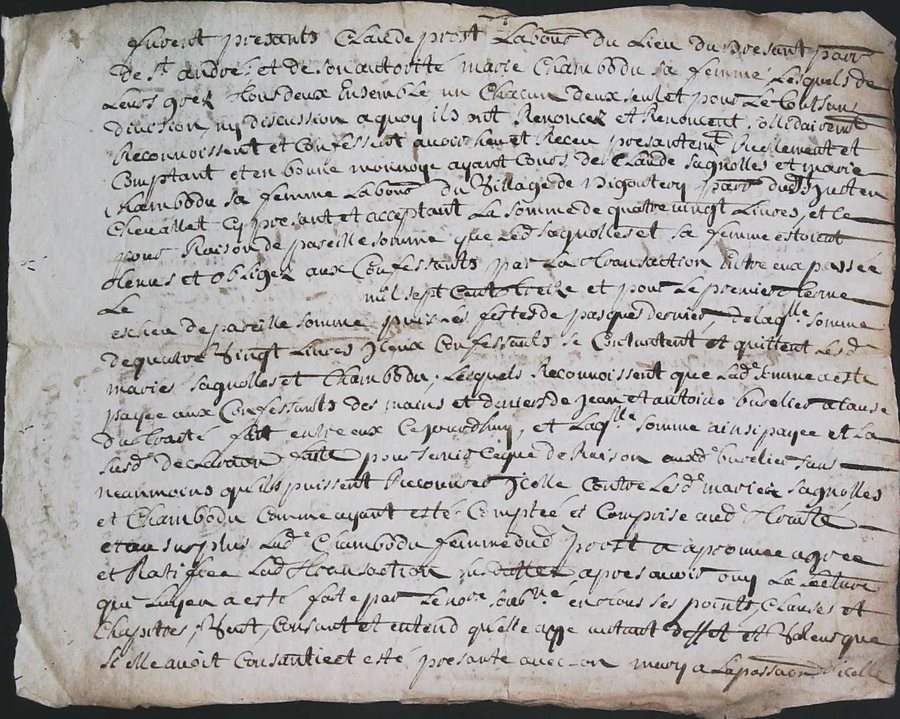 furent presants Claude prost Labour du Lieu du present parr
de st andré et de son authorité marie Chambodu sa femme Lesquels de
Leurs grez tous deux Ensemble, un Chacun deux seul et pour Le tout sans
division ny discussion a quoy ils ont Renoncez et Renoncent solidairemt
Reconnoissent et Confessent auoir heu et Receu presantemt Reellement et
Comptant et en bonne monnoye ayant Cours de Claude sagnolles et marie
Chambodu sa femme Labour du Village de parr dud st Just en
Cheuallet Cy presant et acceptant La somme de quatre vingt Liures, et ce
pour Raison de pareille somme que Led sagnolles et sa femme estoient
tenus et obligez aux Confessants par La transaction Entre eux passée
Le mil sept Cent treize et pour Le premier terme
escheu de pareille somme puis Les festes de pasques dernier, de laqlle somme
de quatre Vingt Liures Iceux Confessants se Contentent et quittent Lesd
maries sagnolles et Chambodu, Lesquels Reconnoissent que Lad somme a este
payee aux Confessants des mains et deniers de Jean et antoine buselier a Cause
du traité fait entre eux Cejourdhuy, et Laqlle somme ainsi payee et La
susd declaration faite pour seruir Ce que de Raison auxd buselier sans
neanmoins qu'ils puissent Recouurer Icelle Contre Lesd mariez sagnolles
et Chambodu Comme ayant esté Comptée et Comprise aud traité
et au surplus Lad Chambodu femme dud prost a aprouuee agree
et Ratiffiee Lad transaction apres auoir ouy La Lecture
que Luy en a esté faite par Le nore soubne en tous ses points, Clauses et
Chapitres, Veut, Consant et entend qu'elle aye autant deffet et Valeur que
si elle auoit Consantie et esté presante auec son mary a La passation d'icelle